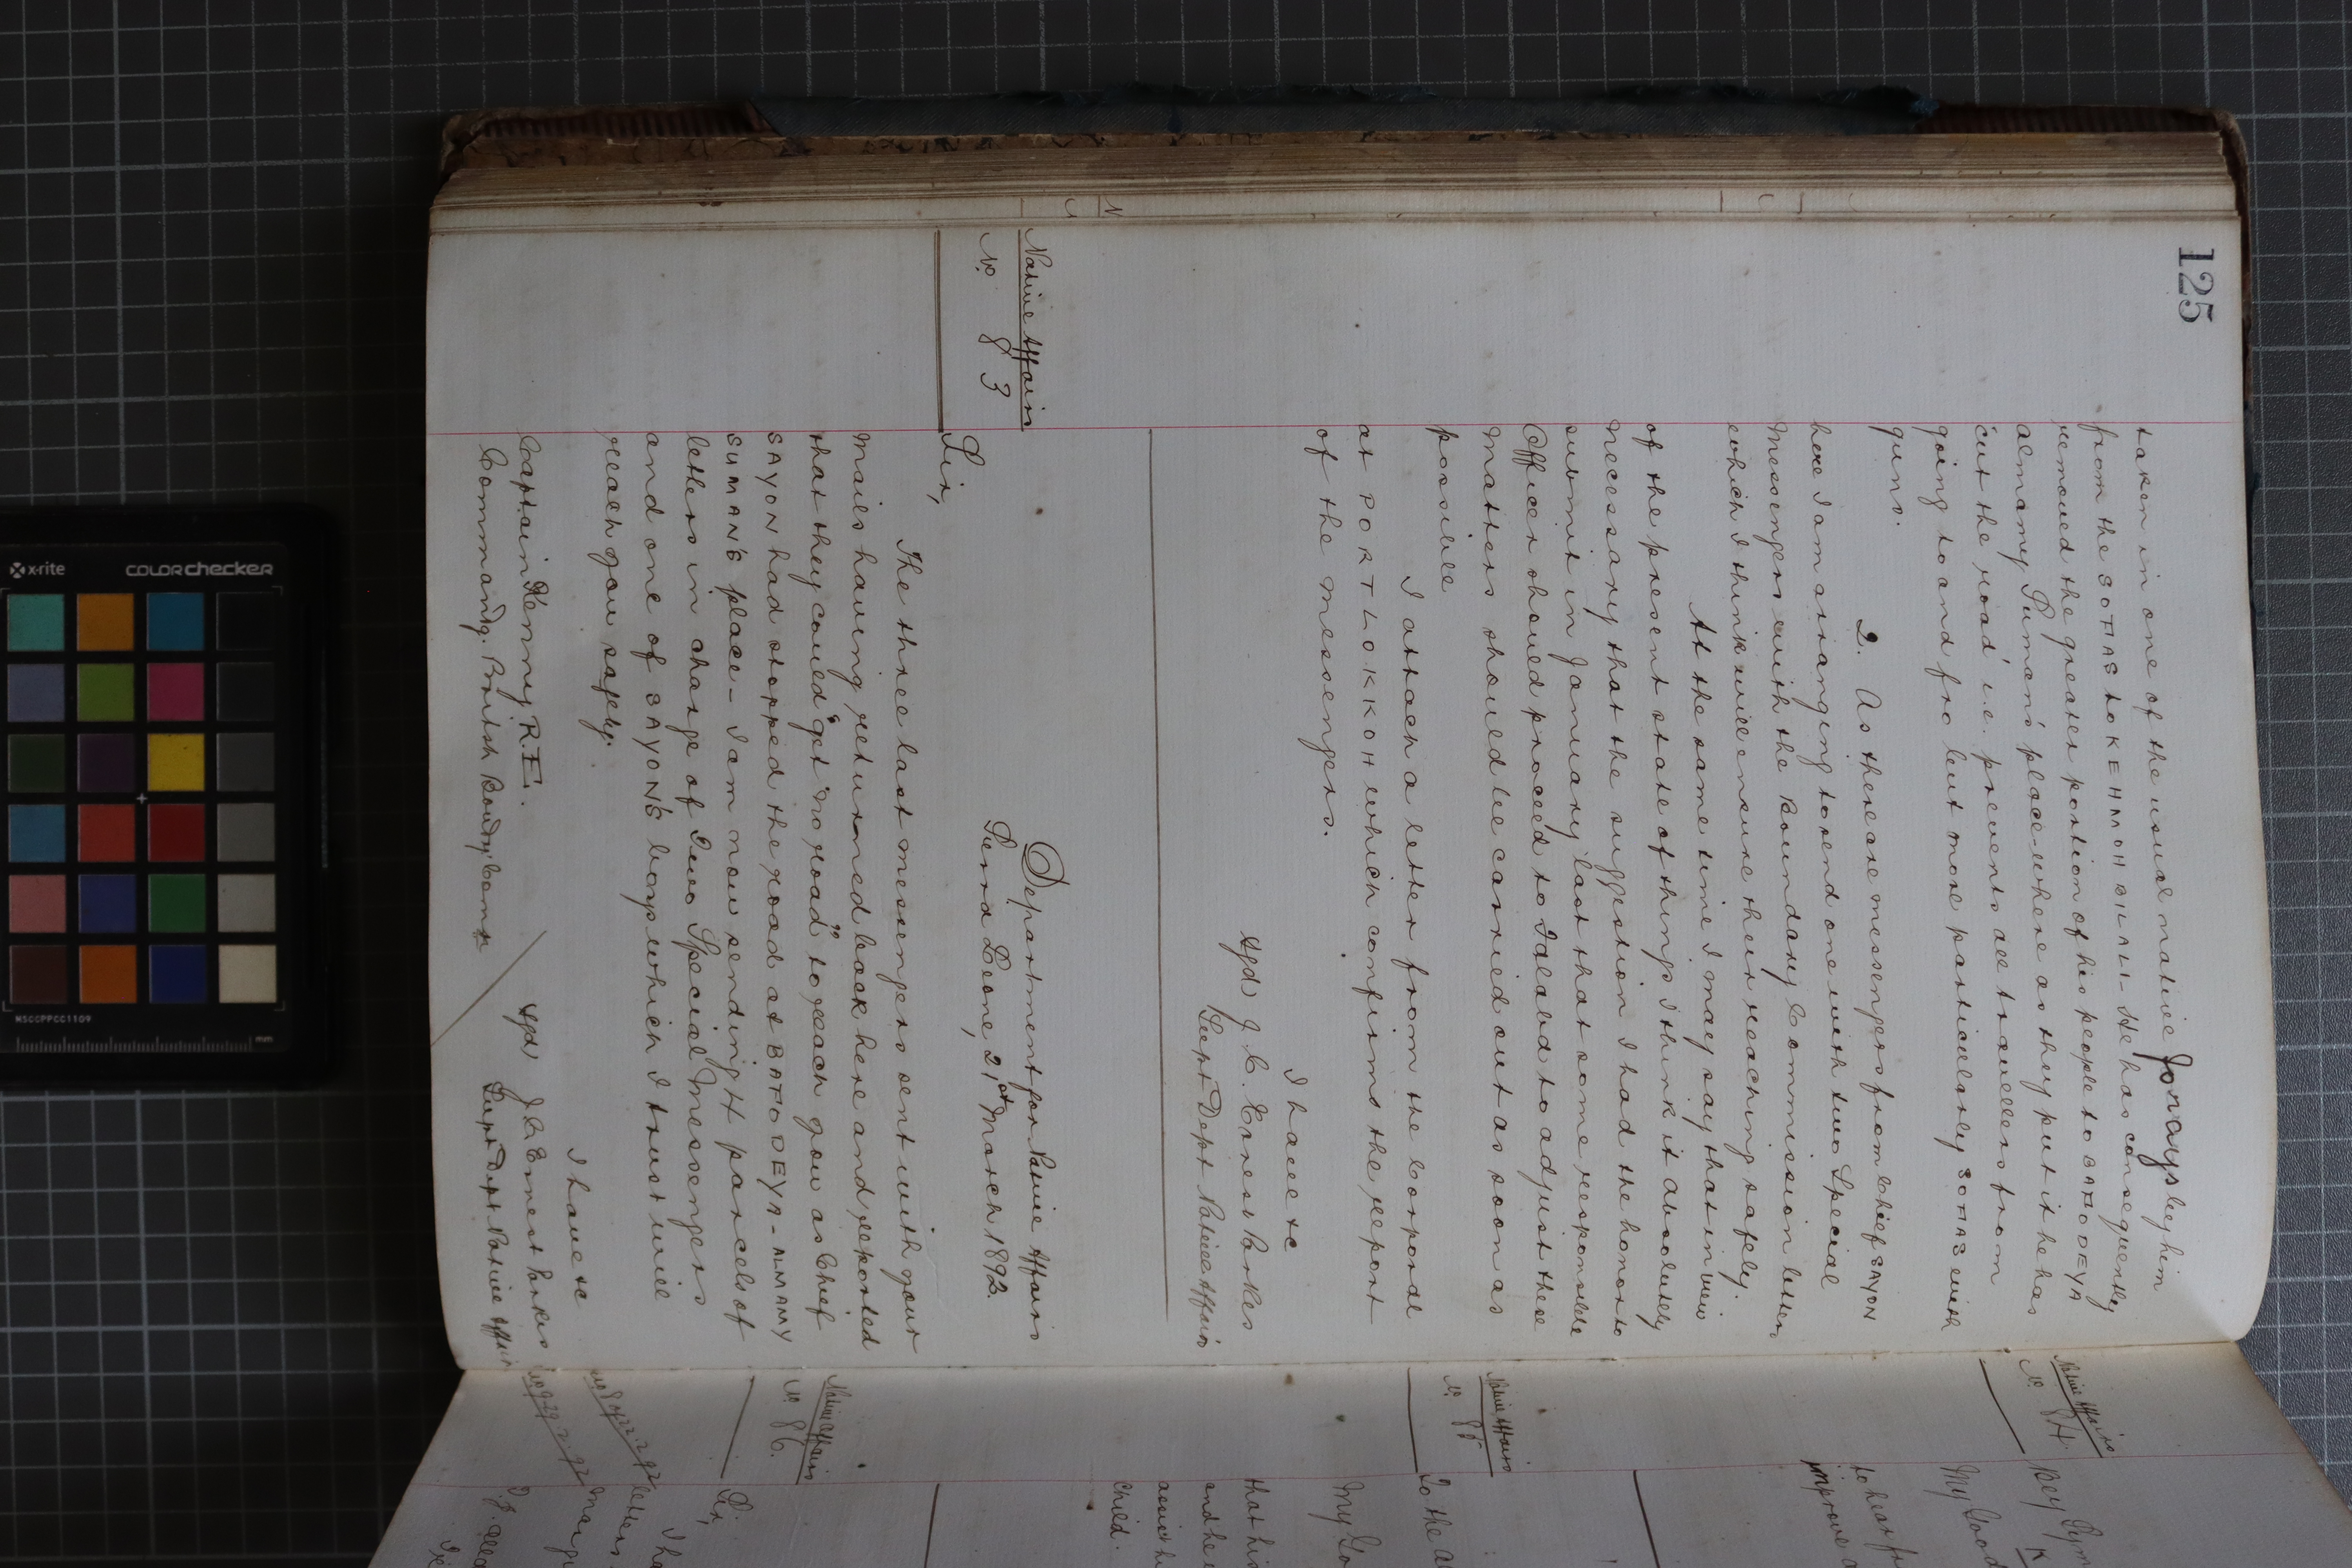 125
taken in one of the usual native forays by him
from the SOFAS to KEHMOH BILALI - He has consequently
removed the greater portion of his people to BAFODEYA
almamy Suman's place - where as they put it he has
'cut the road' i.e. prevents all travellers from
going to and fro but more particularly SOFAS with
guns.
2. As there are messengers from Chief SAYON
here I am arranging to send one with two Special
Messengers with the Boundary Commission letters
which I think will ensure their reaching safely.
At the same time I may say that in view
of the present state of things I think it absolutely
necessary that the suggestion I had the honor to
submit in January last that some responsible
Officer should proceed to Falaba to adjust these
matters should be carried out as soon as
possible
I attach a letter from the Corporal
at PORT LOKKOH which confirms the report
of the messengers.
I have &c
sgd) J. C. Ernest Parkes
Supt Dept Native Affairs
Native Affairs
No. 83
Department for Native Affairs
Sierra Leone, 21st March 1892.
Sir,
The three last messengers sent with your
mails having returned back here and reported
that they could "get no road" to reach you as Chief
SAYON had stopped the road at BAFODEYA - ALMAMY
SUMAN'S place - I am now sending 4 parcels of
letters in charge of Two Special Messengers
and one of SAYON'S boys which I trust will
reach you safely.
I have &c
sgd) J C Ernest Parkes
Supt Dept Native Affairs
Captain Kenny R.E.
Commandg. British Boundy Commn
Native Affairs
No. 84.
Bey
My Good
to hear fr
improve
Native Affairs
No. 85
To the
My Go
that his
and he
assist h
child.
Native Affairs
No. 86.
Sir,
I ha
letters